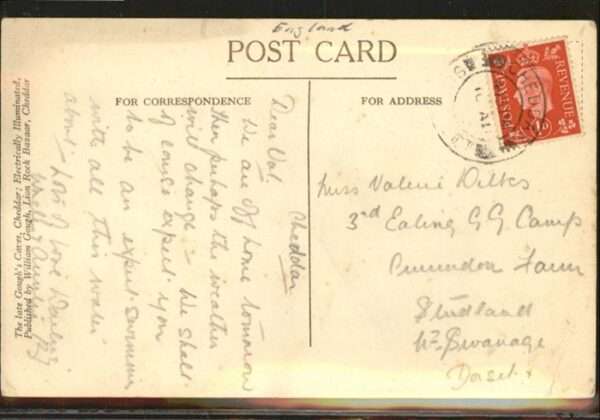 England
POST CARD
FOR CORRESPONDENCE
FOR ADDRESS
The late Gough's Caves, Cheddar; Electrically Illuminated.
Published by William Gough, Lion Rock Bazaar, Cheddar
Cheddar
Dear Val.
We are off home tomorrow
then perhaps the weather
will change - We shall
of course expect you
to be an expert swimmer
with all this water
about - Lots of love Darling
from
Miss Valerie Dilkes
3rd Ealing G G Camp
Farm
Studland
Nr. Swanage
Dorset
POSTAGE
REVENUE
CHEDDAR